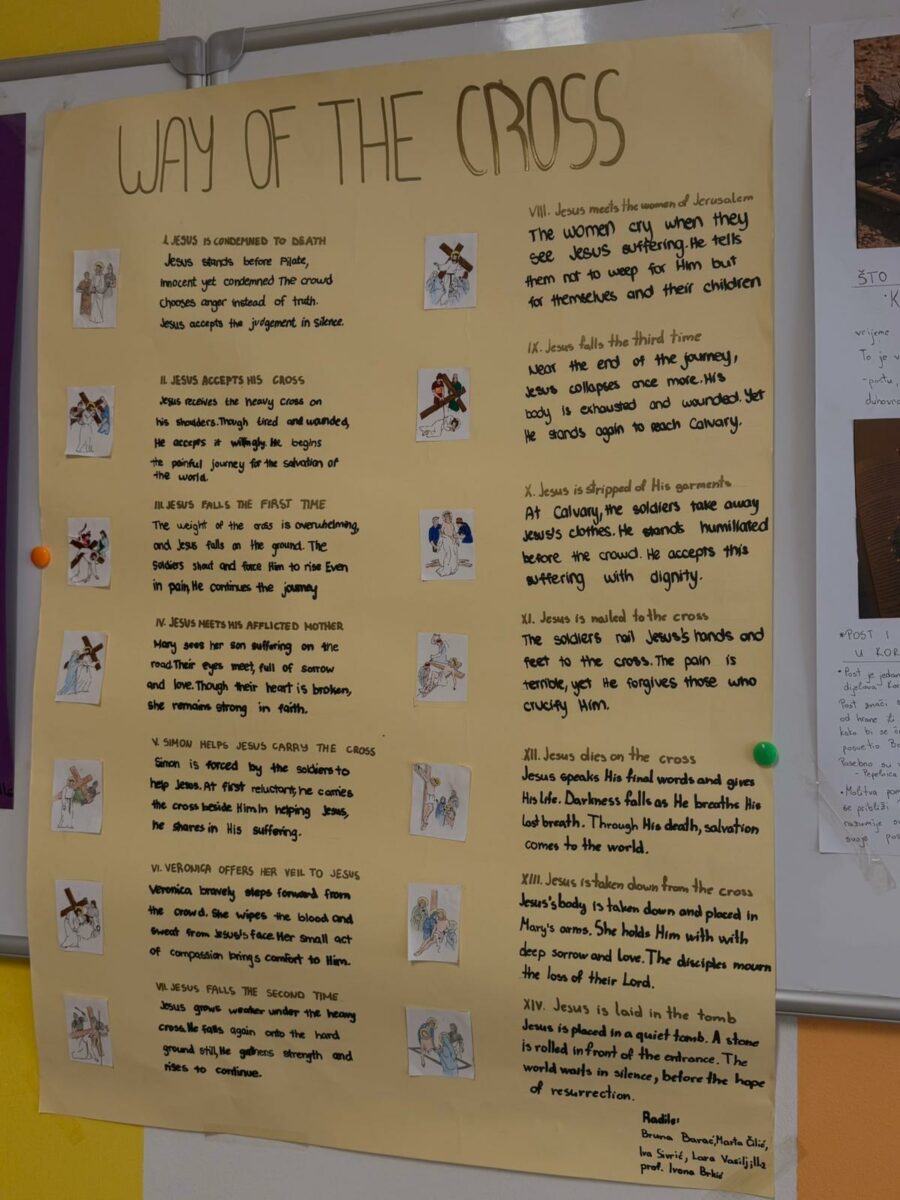 WAY OF THE CROSS
I. JESUS IS CONDEMNED TO DEATH
Jesus stands before Pilate,
innocent yet condemned The crowd
chooses anger instead of truth.
Jesus accepts the judgement in silence.
II. JESUS ACCEPTS HIS CROSS
Jesus receives the heavy cross on
his shoulders. Though tired and wounded,
He accepts it willingly. He begins
the painful journey for the salvation of
the world.
III. JESUS FALLS THE FIRST TIME
The weight of the cross is overwhelming,
and Jesus falls on the ground. The
soldiers shout and force Him to rise Even
in pain, He continues the journey
IV. JESUS MEETS HIS AFFLICTED MOTHER
Mary sees her son suffering on the
road Their eyes meet, full of sorrow
and love. Though their heart is broken,
she remains strong in faith.
V. SIMON HELPS JESUS CARRY THE CROSS
Simon is forced by the soldiers to
help Jesus. At first reluctant, he carries
the cross beside Him In helping Jesus,
he shares in His suffering.
VI. VERONICA OFFERS HER VEIL TO JESUS
Veronica bravely steps forward from
the crowd. She wipes the blood and
sweat from Jesus's face. Her small act
of compassion brings comfort to Him.
VII. JESUS FALLS THE SECOND TIME
Jesus grows weaker under the heavy
cross. He falls again onto the hard
ground still, He gathers strength and
rises to continue.
VIII. Jesus meets the women of Jerusalem
The women cry when they
see Jesus suffering. He tells
them not to weep for Him but
for themselves and their children
IX. Jesus falls the third time
Near the end of the journey,
Jesus collapses once more. His
body is exhausted and wounded. Yet
He stands again to reach Calvary.
X. Jesus is stripped of His garments
At Calvary, the soldiers take away
Jesus's clothes. He stands humiliated
before the crowd. He accepts this
suffering with dignity.
XI. Jesus is nailed to the cross
The soldiers nail Jesus's hands and
feet to the cross. The pain is
terrible, yet He forgives those who
crucify Him.
XII. Jesus dies on the cross
Jesus speaks His final words and gives
His life. Darkness falls as He breathes His
last breath. Through His death, salvation
comes to the world.
XIII. Jesus is taken down from the cross
Jesus's body is taken down and placed in
Mary's arms. She holds Him with with
deep sorrow and love. The disciples mourn
the loss of their Lord.
XIV. Jesus is laid in the tomb
Jesus is placed in a quiet tomb. A stone
is rolled in front of the entrance. The
world waits in silence, before the hope
of resurrection.
Radile:
Bruna Barać, Marta Čilić,
Iva Sivrić, Lara Vasilj,
prof. Ivona Brkić
ŠTO
vrijeme
To je
duhovn
*POST I
U KOR
Post je jedan
dijelova
Post znači
od hrane
kako bi se
posvetio
Posebno su
- Pepelnica
Molitva
se približi
razumije
svoje